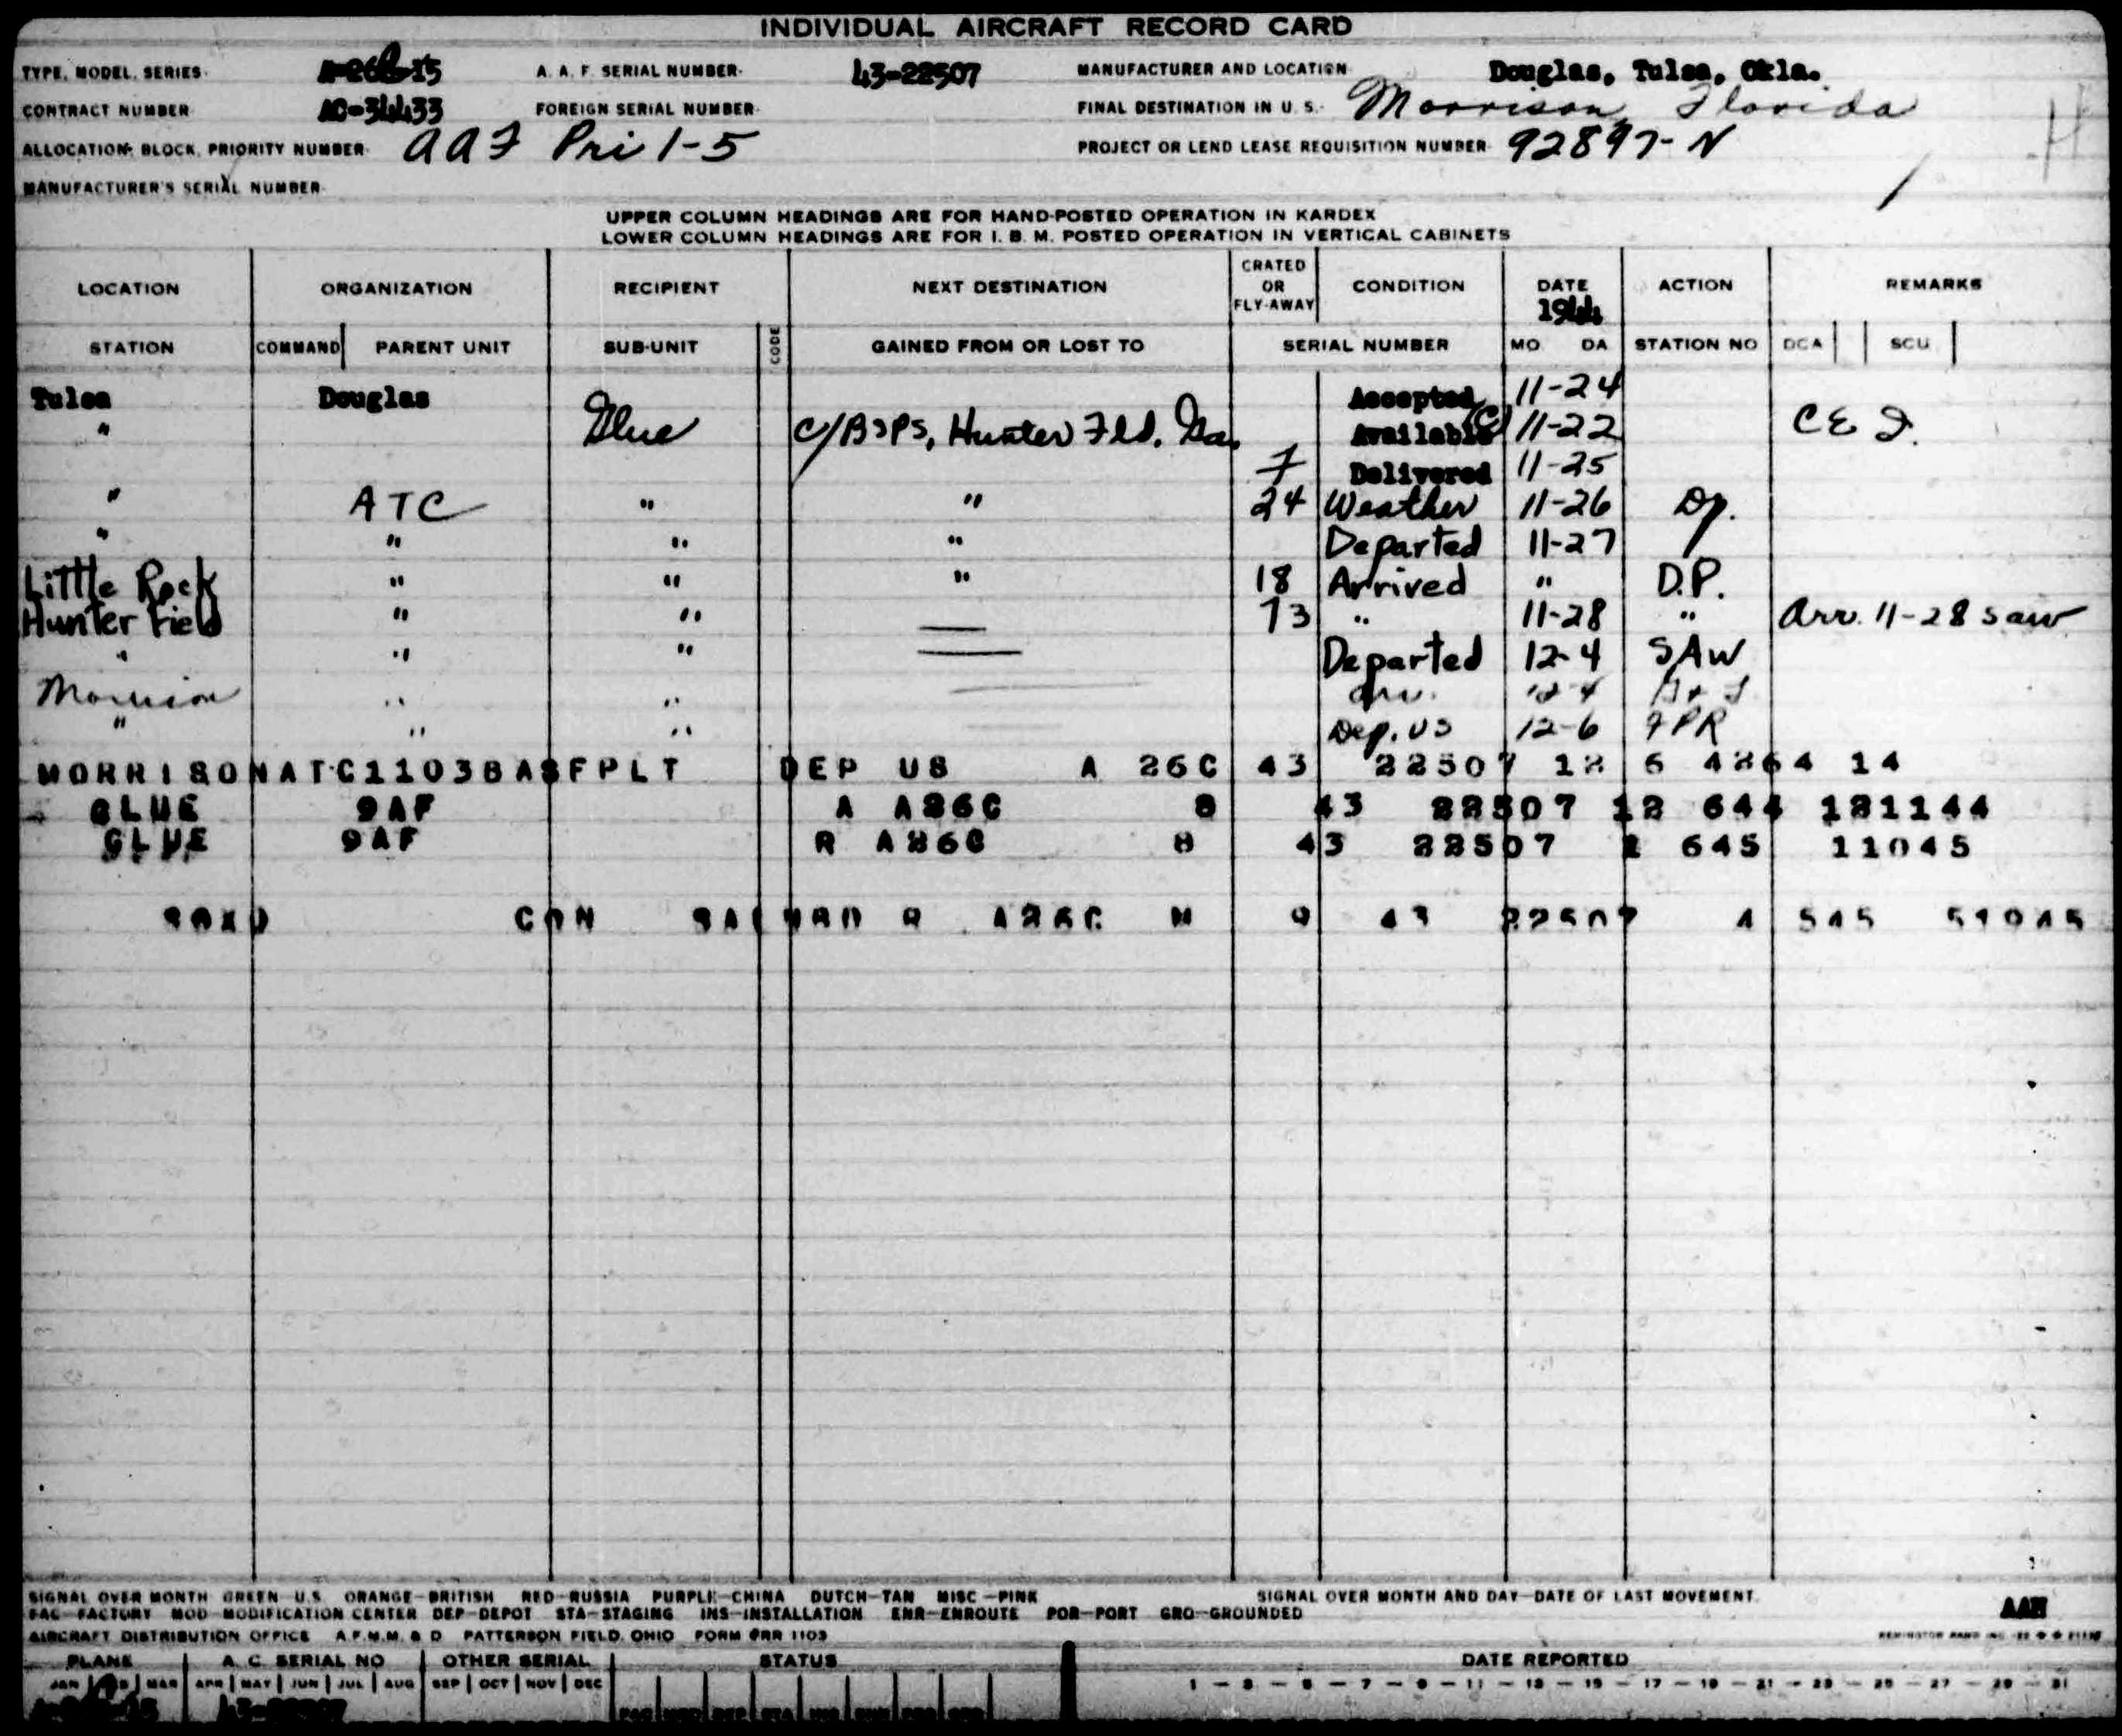 INDIVIDUAL AIRCRAFT RECORD CARD
TYPE, MODEL, SERIES A-26C-15 A. A. F. SERIAL NUMBER 43-22507 MANUFACTURER AND LOCATION Douglas, Tulsa, Okla.
CONTRACT NUMBER AC-34433 FOREIGN SERIAL NUMBER FINAL DESTINATION IN U. S. Morrison, Florida
ALLOCATION, BLOCK, PRIORITY NUMBER AAF Pri 1-5 PROJECT OR LEND LEASE REQUISITION NUMBER 92897-N
MANUFACTURER'S SERIAL NUMBER
UPPER COLUMN HEADINGS ARE FOR HAND-POSTED OPERATION IN KARDEX
LOWER COLUMN HEADINGS ARE FOR I. B. M. POSTED OPERATION IN VERTICAL CABINETS
LOCATION ORGANIZATION RECIPIENT NEXT DESTINATION CRATED OR FLY-AWAY CONDITION DATE 1944 ACTION REMARKS
STATION COMMAND PARENT UNIT SUB-UNIT CODE GAINED FROM OR LOST TO SERIAL NUMBER MO DA STATION NO DCA SCU
Tulsa Douglas Accepted 11-24
" Glue C/B3PS, Hunter Fld, Ga. Available (C) 11-22 CE
7 Delivered 11-25
" ATC " " 24 Weather 11-26 Dp.
" " " " Departed 11-27
Little Rock " " " 18 Arrived " D.P.
Hunter Field " " 73 " 11-28 " Arr. 11-28 Saw
" " " Departed 12-4 SAW
Morrison " " arr. 12-4
" " " Dep. US 12-6 FPR
MORRISONATC1103BASFPLT DEP US A 26C 43 22507 12 6 4264 14
GLUE 9AF A A26C 8 43 22507 12 644 121144
GLUE 9AF R A26C 8 43 22507 1 645 11045
CON R A26C M 9 43 22507 4 545 51045
SIGNAL OVER MONTH GREEN-U.S. ORANGE-BRITISH RED-RUSSIA PURPLE-CHINA DUTCH-TAN MISC-PINK SIGNAL OVER MONTH AND DAY-DATE OF LAST MOVEMENT
FAC-FACTORY MOD-MODIFICATION CENTER DEP-DEPOT STA-STAGING INS-INSTALLATION ENR-ENROUTE POR-PORT GRO-GROUNDED
AIRCRAFT DISTRIBUTION OFFICE A.F.M.M. & D PATTERSON FIELD, OHIO FORM PRR 1103
PLANE A. C. SERIAL NO OTHER SERIAL STATUS DATE REPORTED
JAN | FEB | MAR | APR | MAY | JUN | JUL | AUG | SEP | OCT | NOV | DEC 1 - 3 - 5 - 7 - 9 - 11 - 13 - 15 - 17 - 19 - 21 - 23 - 25 - 27 - 29 - 31